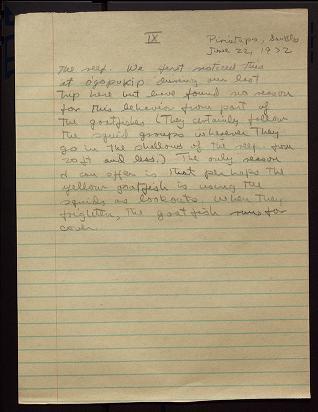 IX
June 22, 1972
The reef. We first noticed this
at Ogopukip during our last
trip here but have found no reason
for this behavior from part of
the goatfishes (They certainly follow
the squid groups wherever they
go in the shallows of the reef from
20 ft and less.) The only reason
I can offer is that perhaps the
yellow goatfish is using the
squids as lookouts. When they
frighten, the goatfish runs for
cover.